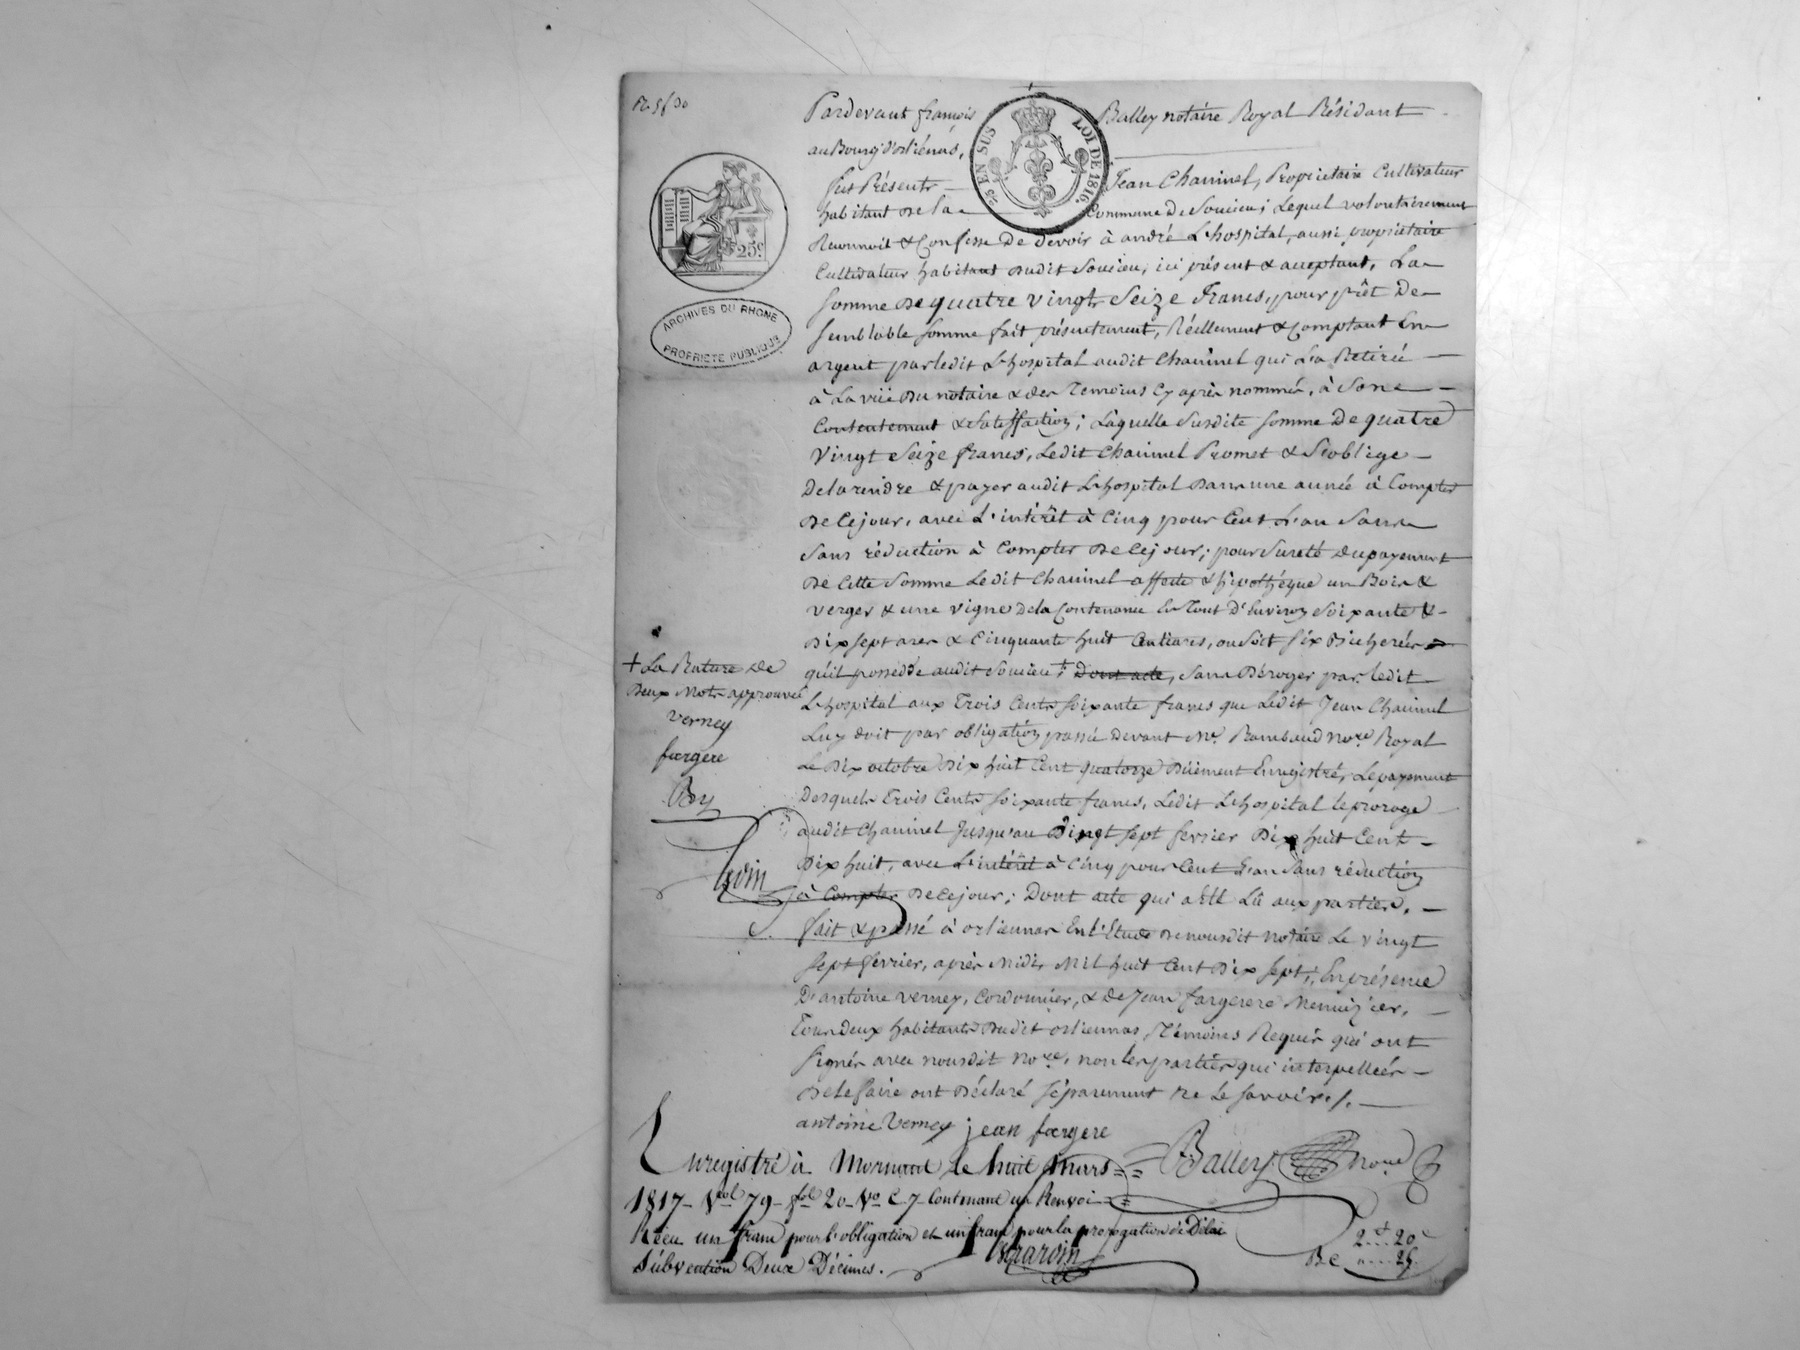 Pardevant françois Balley notaire Royal Résidant
au Bourg d'orliénas,
25 EN SUS LOI DE 1816.
fut Présent Jean Chauinel, Propriétaire Cultivateur
habitant de la Commune de Soucieu; Lequel volontairement
Reconnoit & Confesse de devoir à andré L'hospital, aussi propriétaire
25c.
Cultivateur habitant dudit Soucieu, ici présent & acceptant, La
Somme de quatre vingt Seize francs, pour prêt De
ARCHIVES DU RHONE
PROPRIETE PUBLIQUE
Semblable Somme fait présentement, Réellement & Comptant En
argent par ledit L'hospital audit Chauinel qui L'a Retiré
à La vüe du notaire & des Temoins Cy après nommés, à Son
Contentement & Satisffaction; Laquelle Susdite Somme De quatre
Vingt Seize francs, Ledit Chauinel Promet & S'oblige
De la rendre & payer audit L'hospital Dans une année à Compter
De Cejour, avec L'intérêt à Cinq pour Cent L'an Sans
Sans réduction à Compter De Cejour; pour Sureté du payement
De Cette Somme Ledit Chauinel affecte & hipothéque un Bois &
verger & une vigne de la Contenance En Tout D'Environ Soixante &
Dix Sept ares & Cinquante huit Centiares, ou Soit Six Bicherées
qu'il possedde audit Soucieu + Dont acte, Sans Déroger par ledit
+ La Rature De
Deux Mots approuvée
verney
fargere
By
L'hospital aux Trois Cents Soixante francs que Ledit Jean Chauinel
Luy doit par obligation passée Devant Me. Rambaud Nore. Royal
Le Dix octobre Dix huit Cent quatorze Düement Enregistrée, Le payement
Desquels Trois Cents Soixante francs, Ledit L'hospital le proroge
audit Chauinel Jusqu'au Vingt Sept fevrier Dix huit Cent
Dix huit, avec L'intérêt à Cinq pour Cent L'an Sans réduction
à Compter De Cejour; Dont acte qui a Eté Lû aux parties.
fait & passé à orliennas En l'Etude de nousdit Notaire Le Vingt
Sept fevrier, après Midi, Mil huit Cent Dix Sept; En présence
D'antoine verney, Cordonnier, & de Jean fargere Menuizier,
Tous deux habitants dudit orliennas, Témoins Requis qui ont
Signés avec nousdit Nore. non les parties qui interpellées
De le faire ont Déclaré Séparement Ne Le Savoir./.
antoine Verney jean fargere
Balley Nore
Enregistré à Mornant le huit mars
1817 Vol 79 fol 20 Vo C 7 Contenant un Renvoi
Reçu un franc pour l'obligation et un franc pour la prorogation de Délai
Subvention Deux Décimes.
2f 20c
25